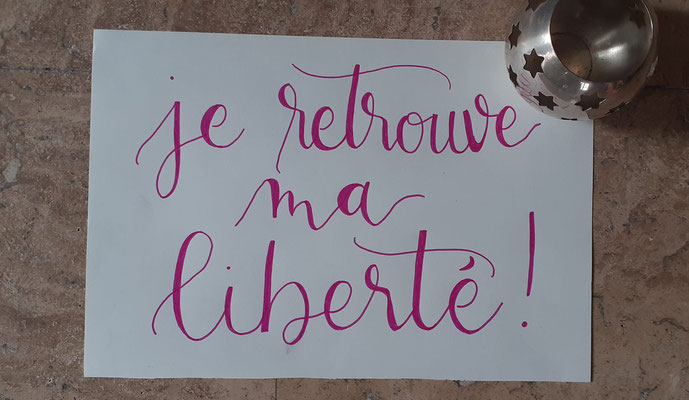 je retrouve
ma
liberté !